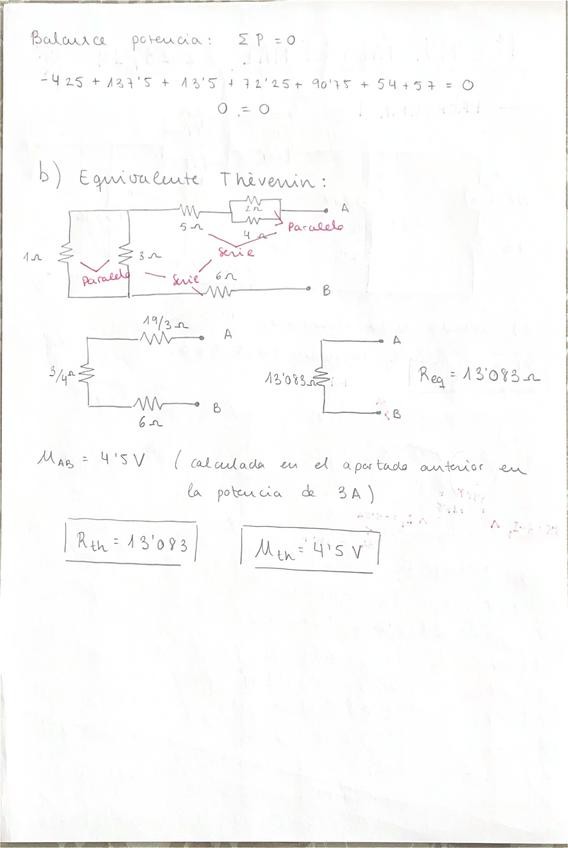 Balance potencia: Σ P = 0
-425 + 137'5 + 13'5 + 72'25 + 90'75 + 54 + 57 = 0
0 = 0
b) Equivalente Thèvenin:
2Ω A
5Ω 4Ω Paralelo
Serie
1Ω 3Ω
Paralelo Serie 6Ω
B
19/3 Ω A
3/4Ω
B
6Ω
A
13'083Ω
B
Req = 13'083Ω
MAB = 4'5 V (calculada en el apartado anterior en
la potencia de 3A)
Rth = 13'083 Mth = 4'5 V